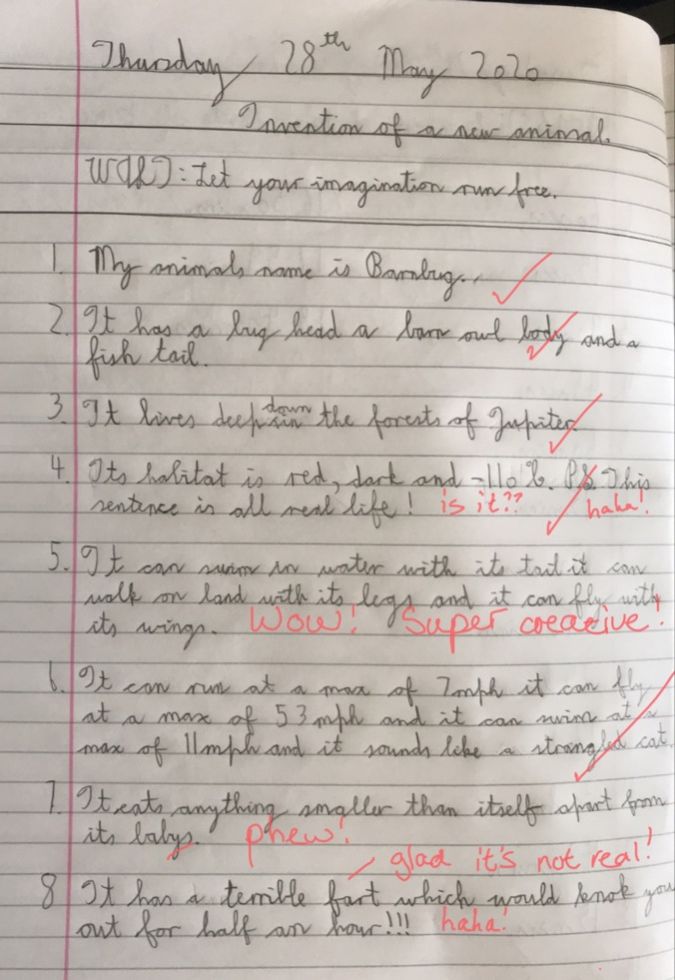 Thursday 28th May 2020
Invention of a new animal.
WALT: Let your imagination run free.
1. My animals name is Barnbug..
2. It has a bug head a barn owl body and a
fish tail.
3. It lives deep down in the forests of Jupiter.
4. Its habitat is red, dark and -110°C. P.S This
sentence is all real life! is it?? haha!
5. It can swim in water with its tail it can
walk on land with its legs and it can fly with
its wings. Wow! Super creative!
6. It can run at a max of 7mph it can fly
at a max of 53mph and it can swim at a
max of 11mph and it sounds like a strangled cat.
7. It eats anything smaller than itself apart from
its babys. phew!
glad it's not real!
8 It has a terrible fart which would knok you
out for half an hour!!! haha!